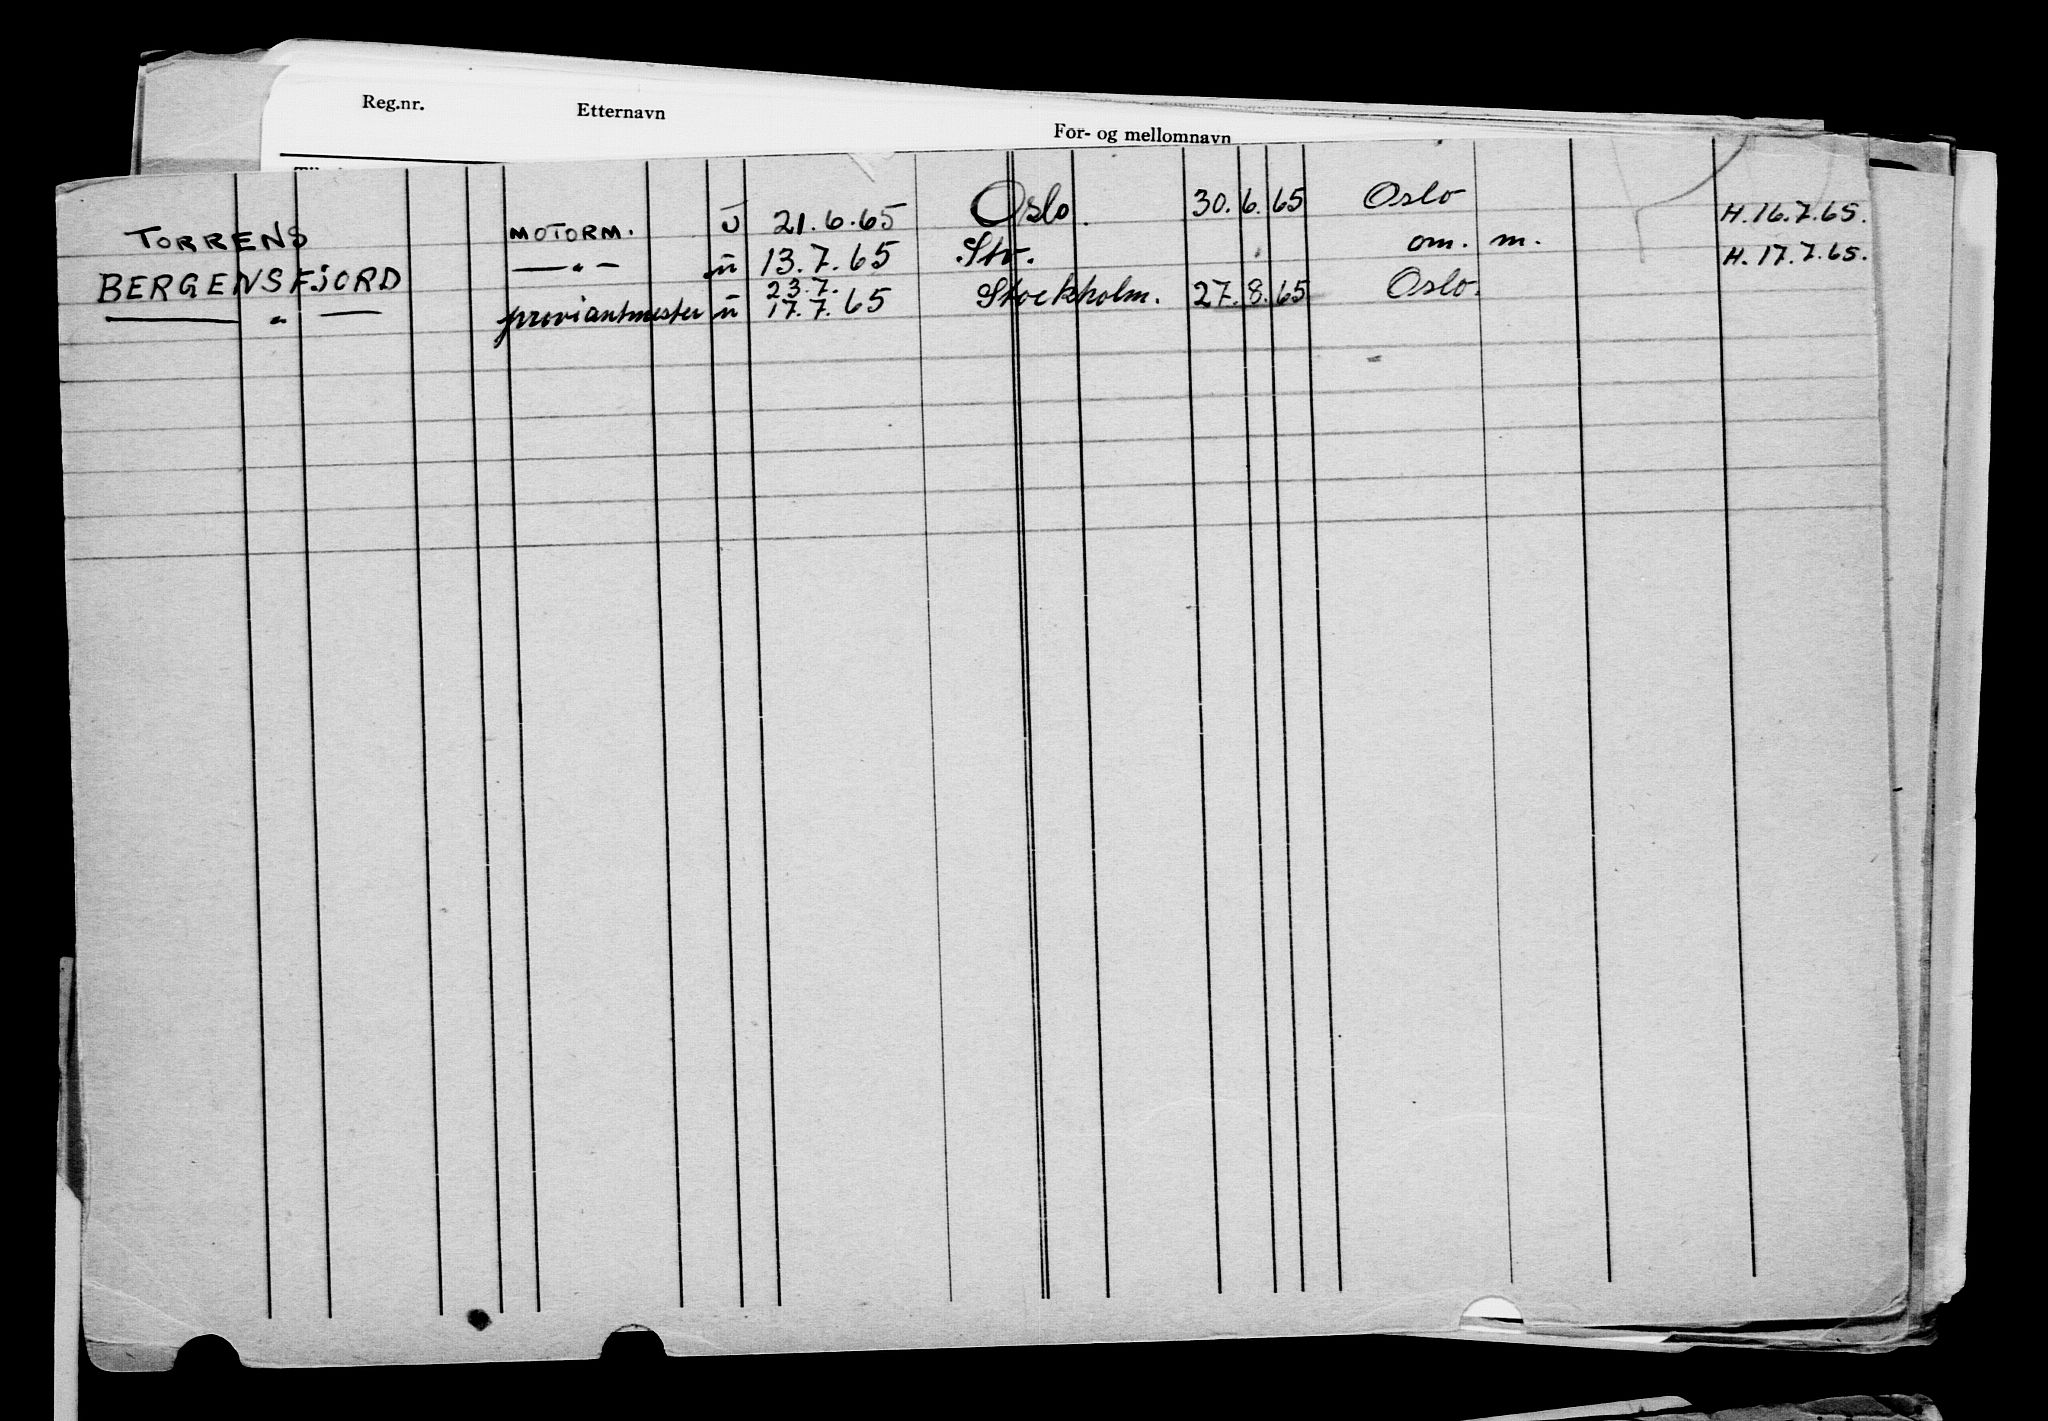 Reg.nr. Etternavn For- og mellomnavn
TORRENS MOTORM. U 21.6.65 Oslo. 30.6.65 Oslo H.16.7.65.
BERGENSFJORD —"— ü 13.7.65 Stv. om. m. H.17.7.65.
—"— proviantmester ü 23.7. 17.7.65 Stockholm. 27.8.65 Oslo.